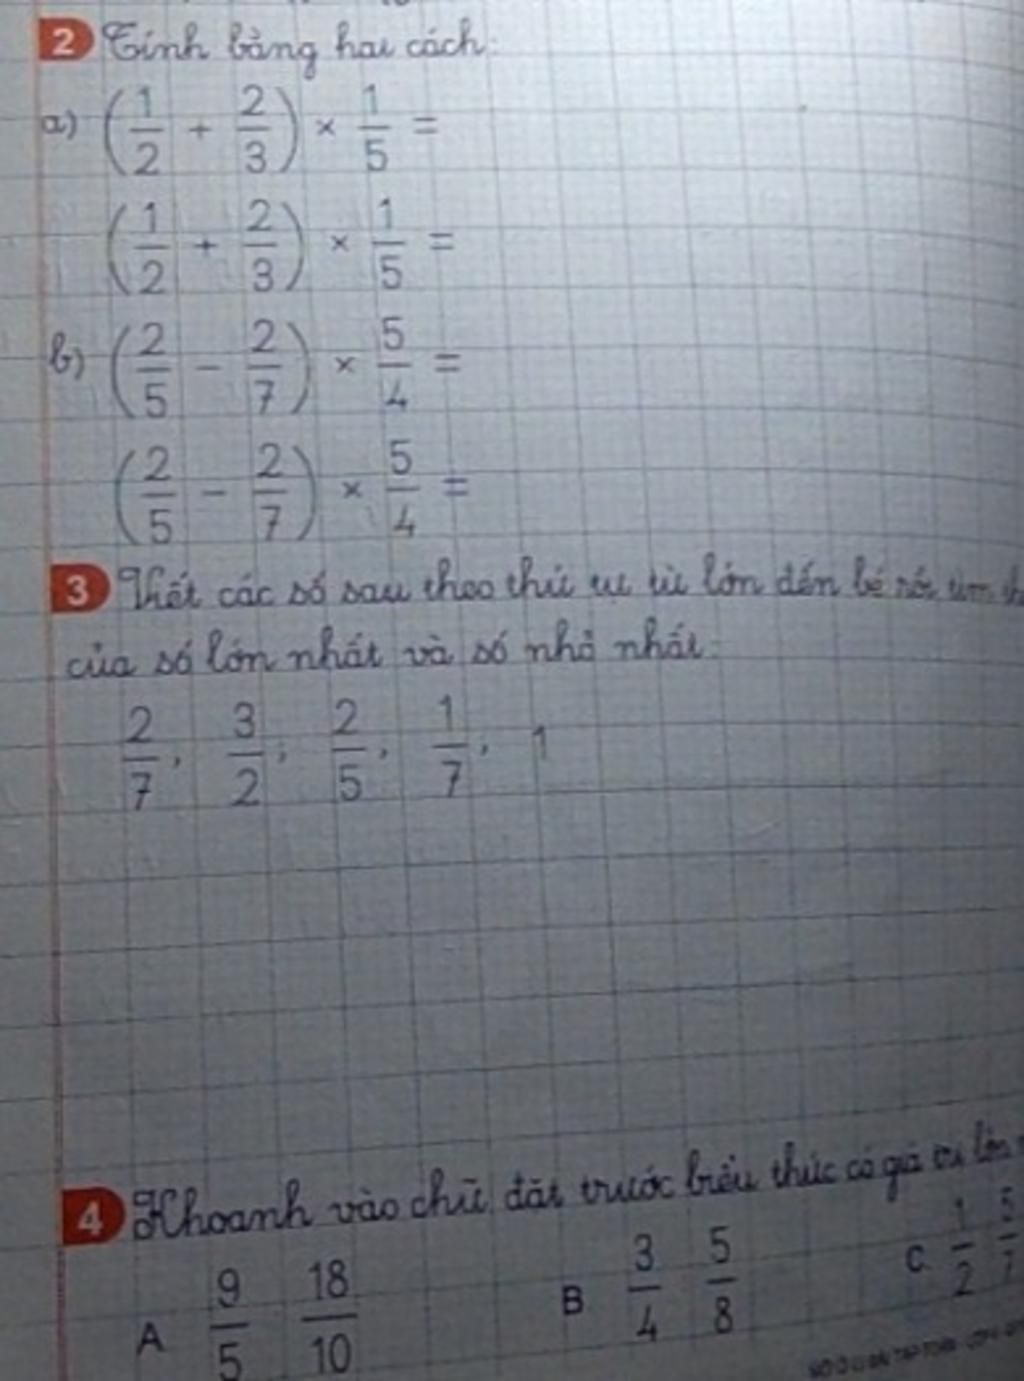 2 Tính bằng hai cách:
a) (1/2 + 2/3) × 1/5 =
(1/2 + 2/3) × 1/5 =
b) (2/5 − 2/7) × 5/4 =
(2/5 − 2/7) × 5/4 =
3 Viết các số sau theo thứ tự từ lớn đến bé rồi tìm
của số lớn nhất và số nhỏ nhất:
2/7; 3/2; 2/5; 1/7; 1
4 Khoanh vào chữ đặt trước biểu thức có giá trị lớn
A 9/5 18/10 B 3/4 5/8 C 1/2 5/7